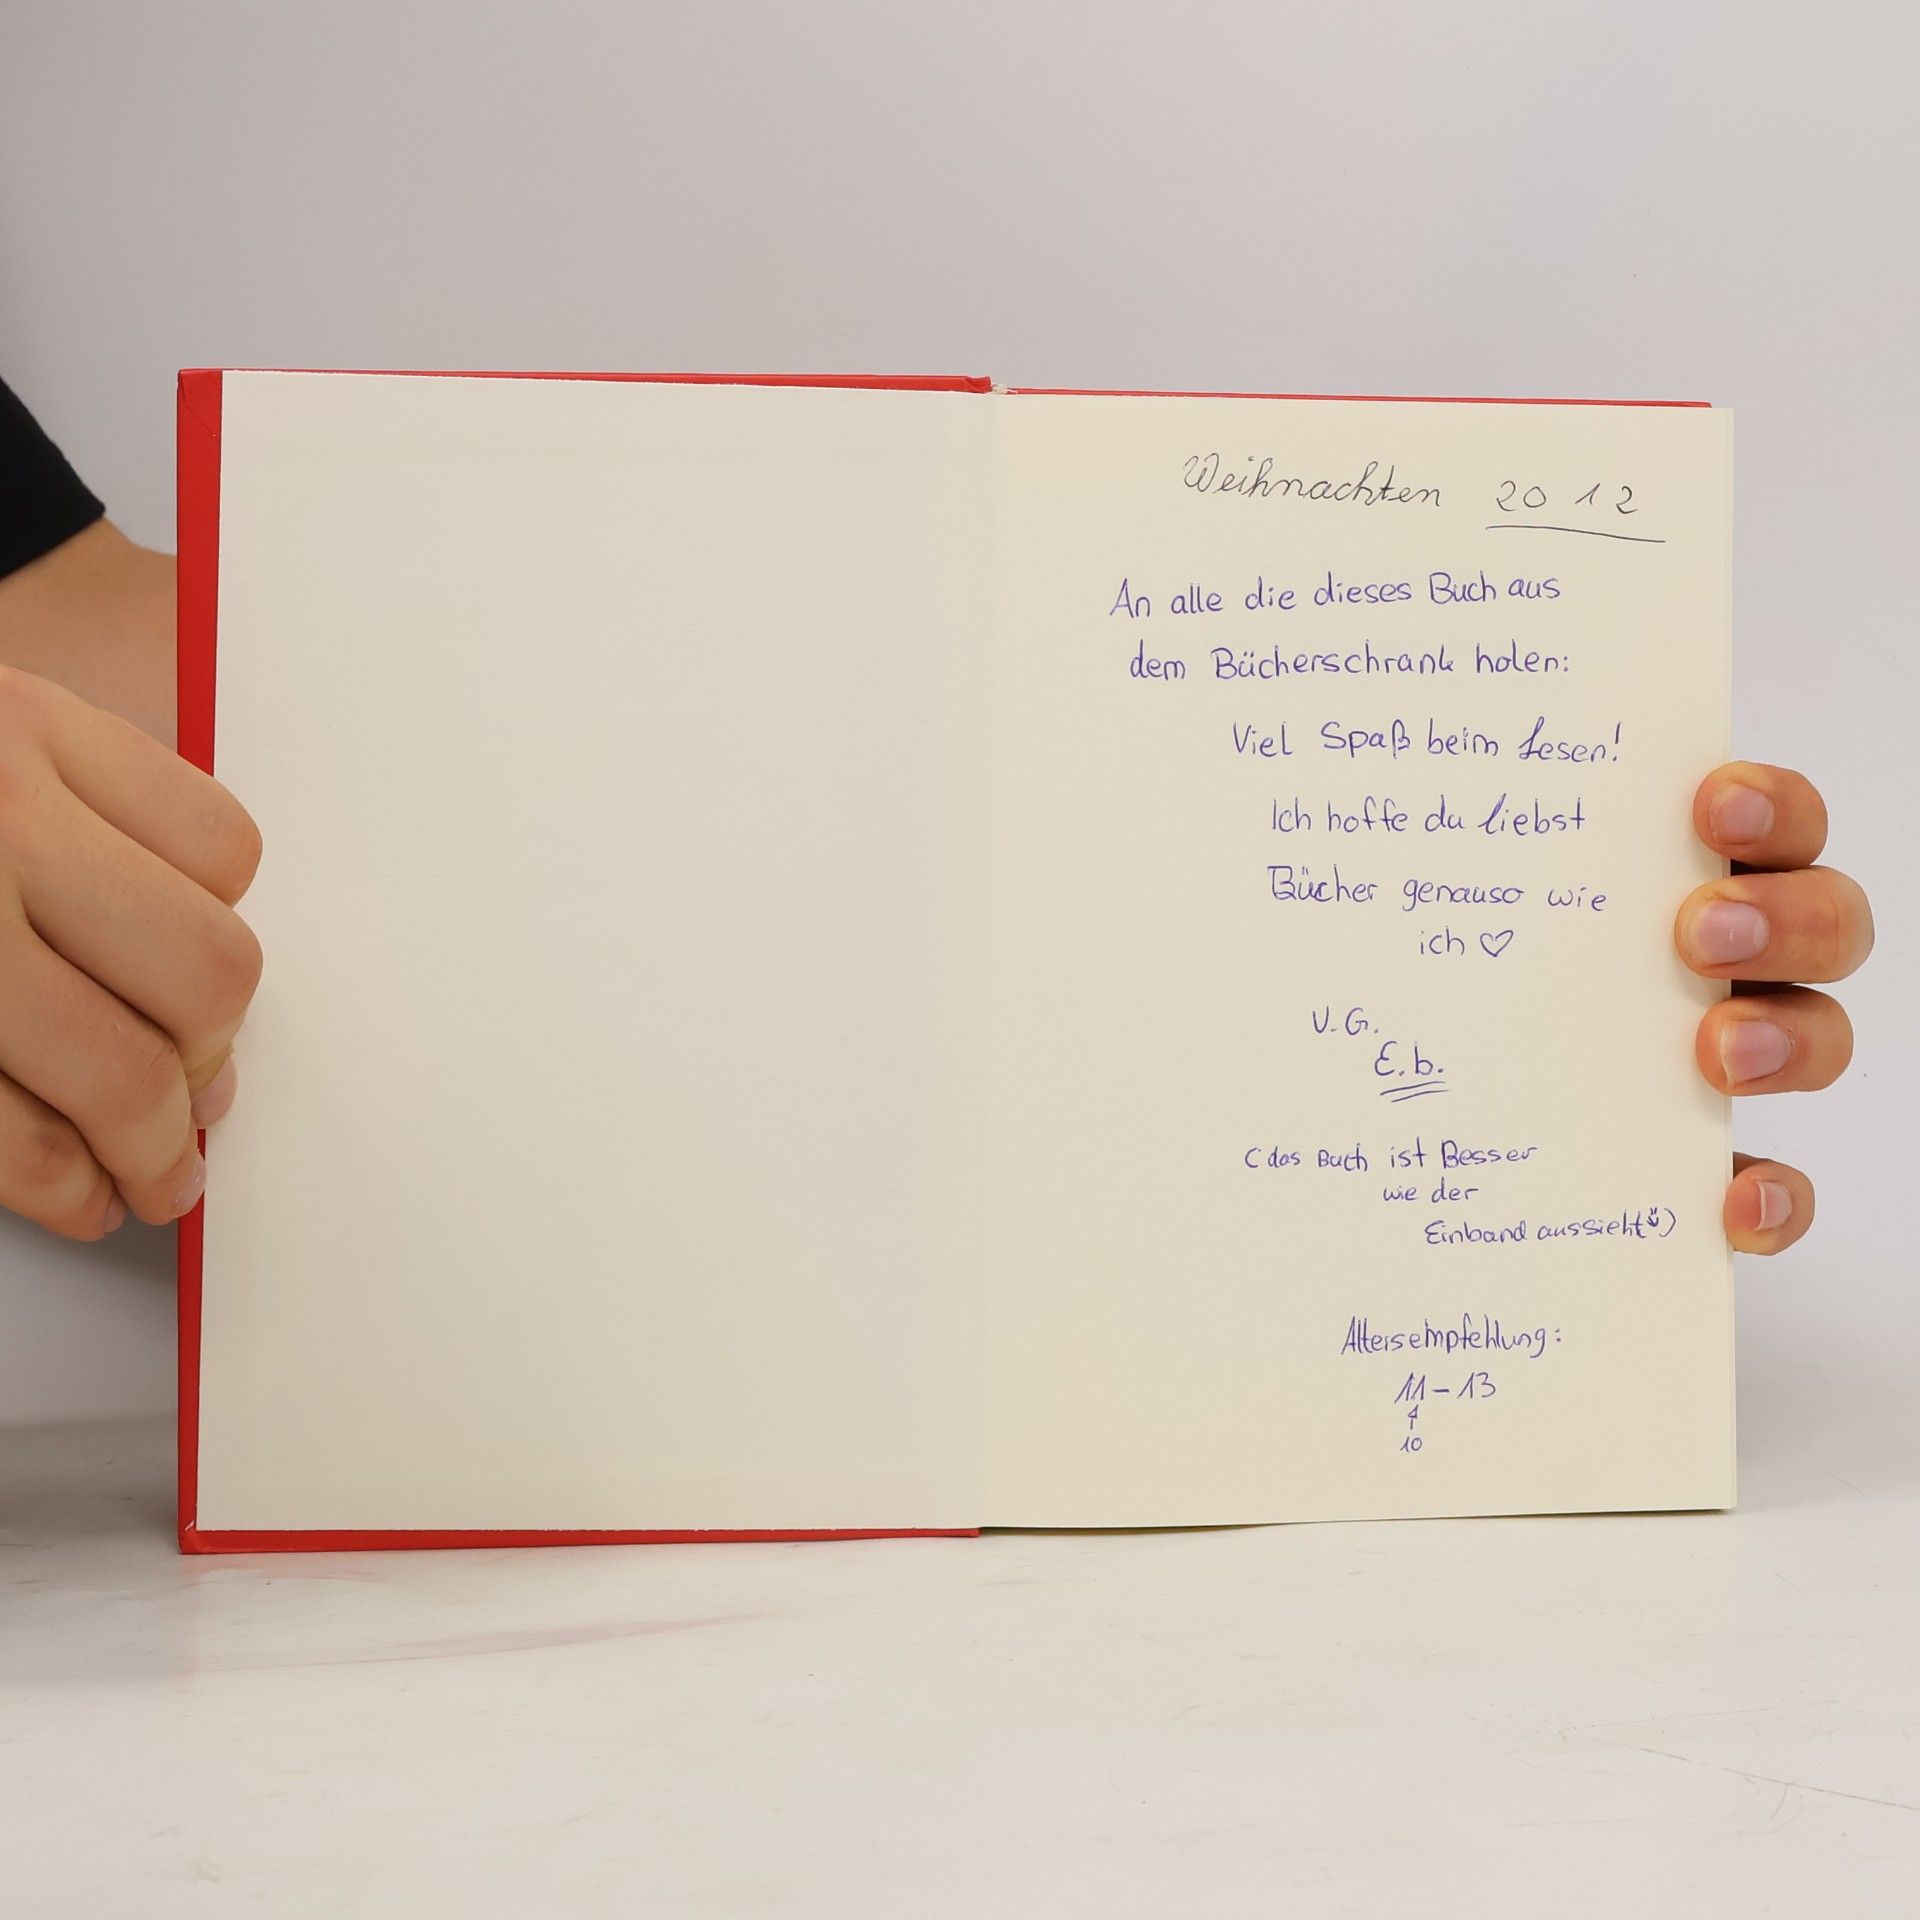 Weihnachten 2012
An alle die dieses Buch aus
dem Bücherschrank holen:
Viel Spaß beim Lesen!
Ich hoffe du liebst
Bücher genauso wie
ich ♡
V.G.
E.b.
(das Buch ist Besser
wie der
Einband aussieht)
Altersempfehlung:
11-13
10